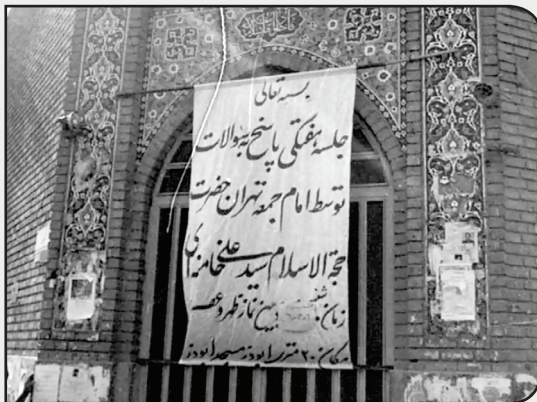 بسمه تعالی
جلسه هفتگی پاسخ به سوالات
توسط امام جمعه تهران حضرت
حجة الاسلام سید علی خامنه ای
زمان: شنبه بین نماز ظهر و عصر
مکان ۲۰ متری ابوذر مسجد ابوذر